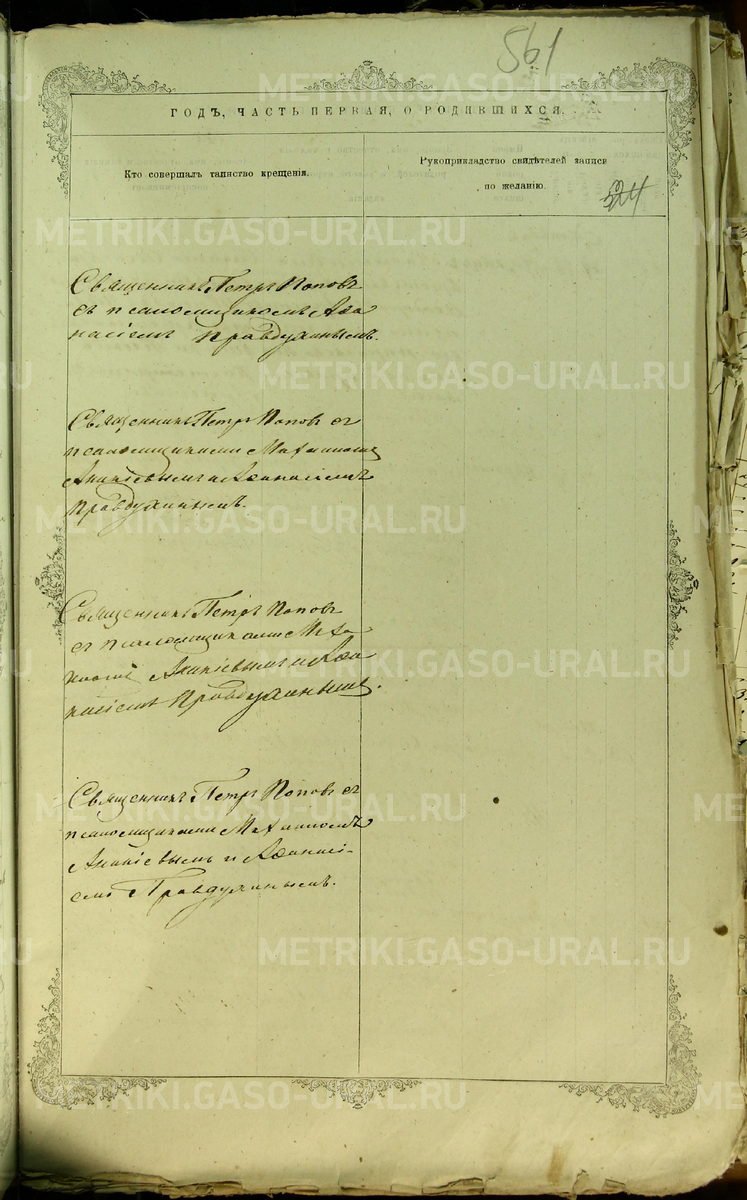 561
ГОДЪ, ЧАСТЬ ПЕРВАЯ, О РОДИВШИХСЯ.
Кто совершалъ таинство крещенія.
Рукоприкладство свидѣтелей записи
по желанію.
324
METRIKI.GASO-URAL.RU
Священникъ Петръ Поповъ
съ псаломщикомъ Аѳа
насіемъ Правдухинымъ.
Священникъ Петръ Поповъ съ
псаломщиками
Ананіевымъ и Аѳанасіемъ
Правдухинымъ.
Священникъ Петръ Поповъ
съ псаломщиками
Ананіевымъ и Аѳа
насіемъ Правдухинымъ.
Священникъ Петръ Поповъ съ
псаломщиками
Ананіевымъ и Аѳанасі-
емъ Правдухинымъ.